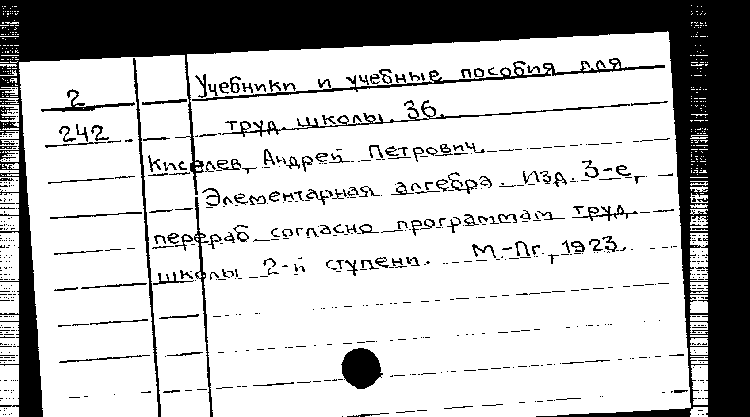 2
242
Учебники и учебные пособия для
труд. школы. 36.
Киселев, Андрей Петрович.
Элементарная алгебра. Изд. 3-е,
перераб. согласно программам труд.
школы 2-й ступени. М.-Пг., 1923.